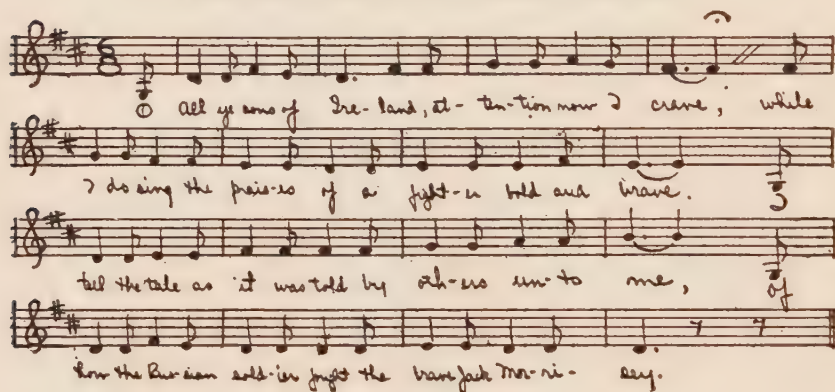 6
8
O All ye sons of Ire-land, at-ten-tion now I crave, while
I do sing the prais-es of a fight-er bold and brave. I
tell the tale as it was told by oth-ers un-to me, of
how the Rus-sian sold-ier fought the brave Jack Mor-ri-sey.